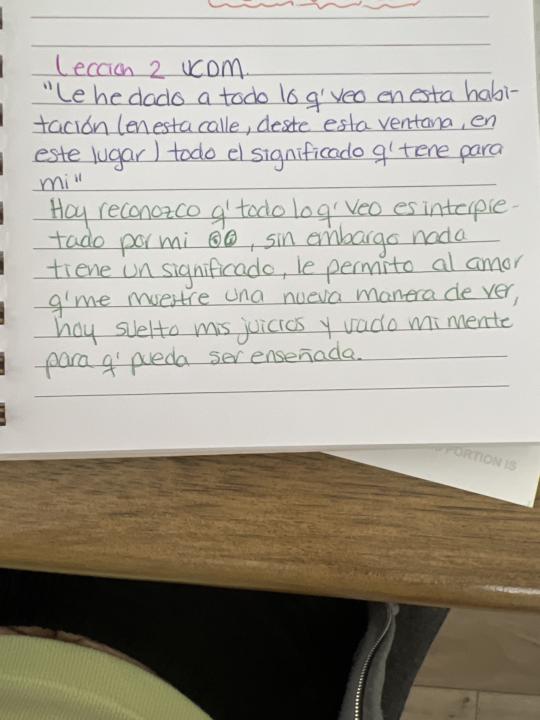 Leccion 2 UCDM.
"Le he dado a todo lo q' veo en esta habi-
tación (en esta calle, deste esta ventana, en
este lugar) todo el significado q' tiene para
mi"
Hoy reconozco q' todo lo q' veo es interpre-
tado por mi, sin embargo nada
tiene un significado, le permito al amor
q' me muestre una nueva manera de ver,
hoy suelto mis juicios y vacío mi mente
para q' pueda ser enseñada.
PORTION IS